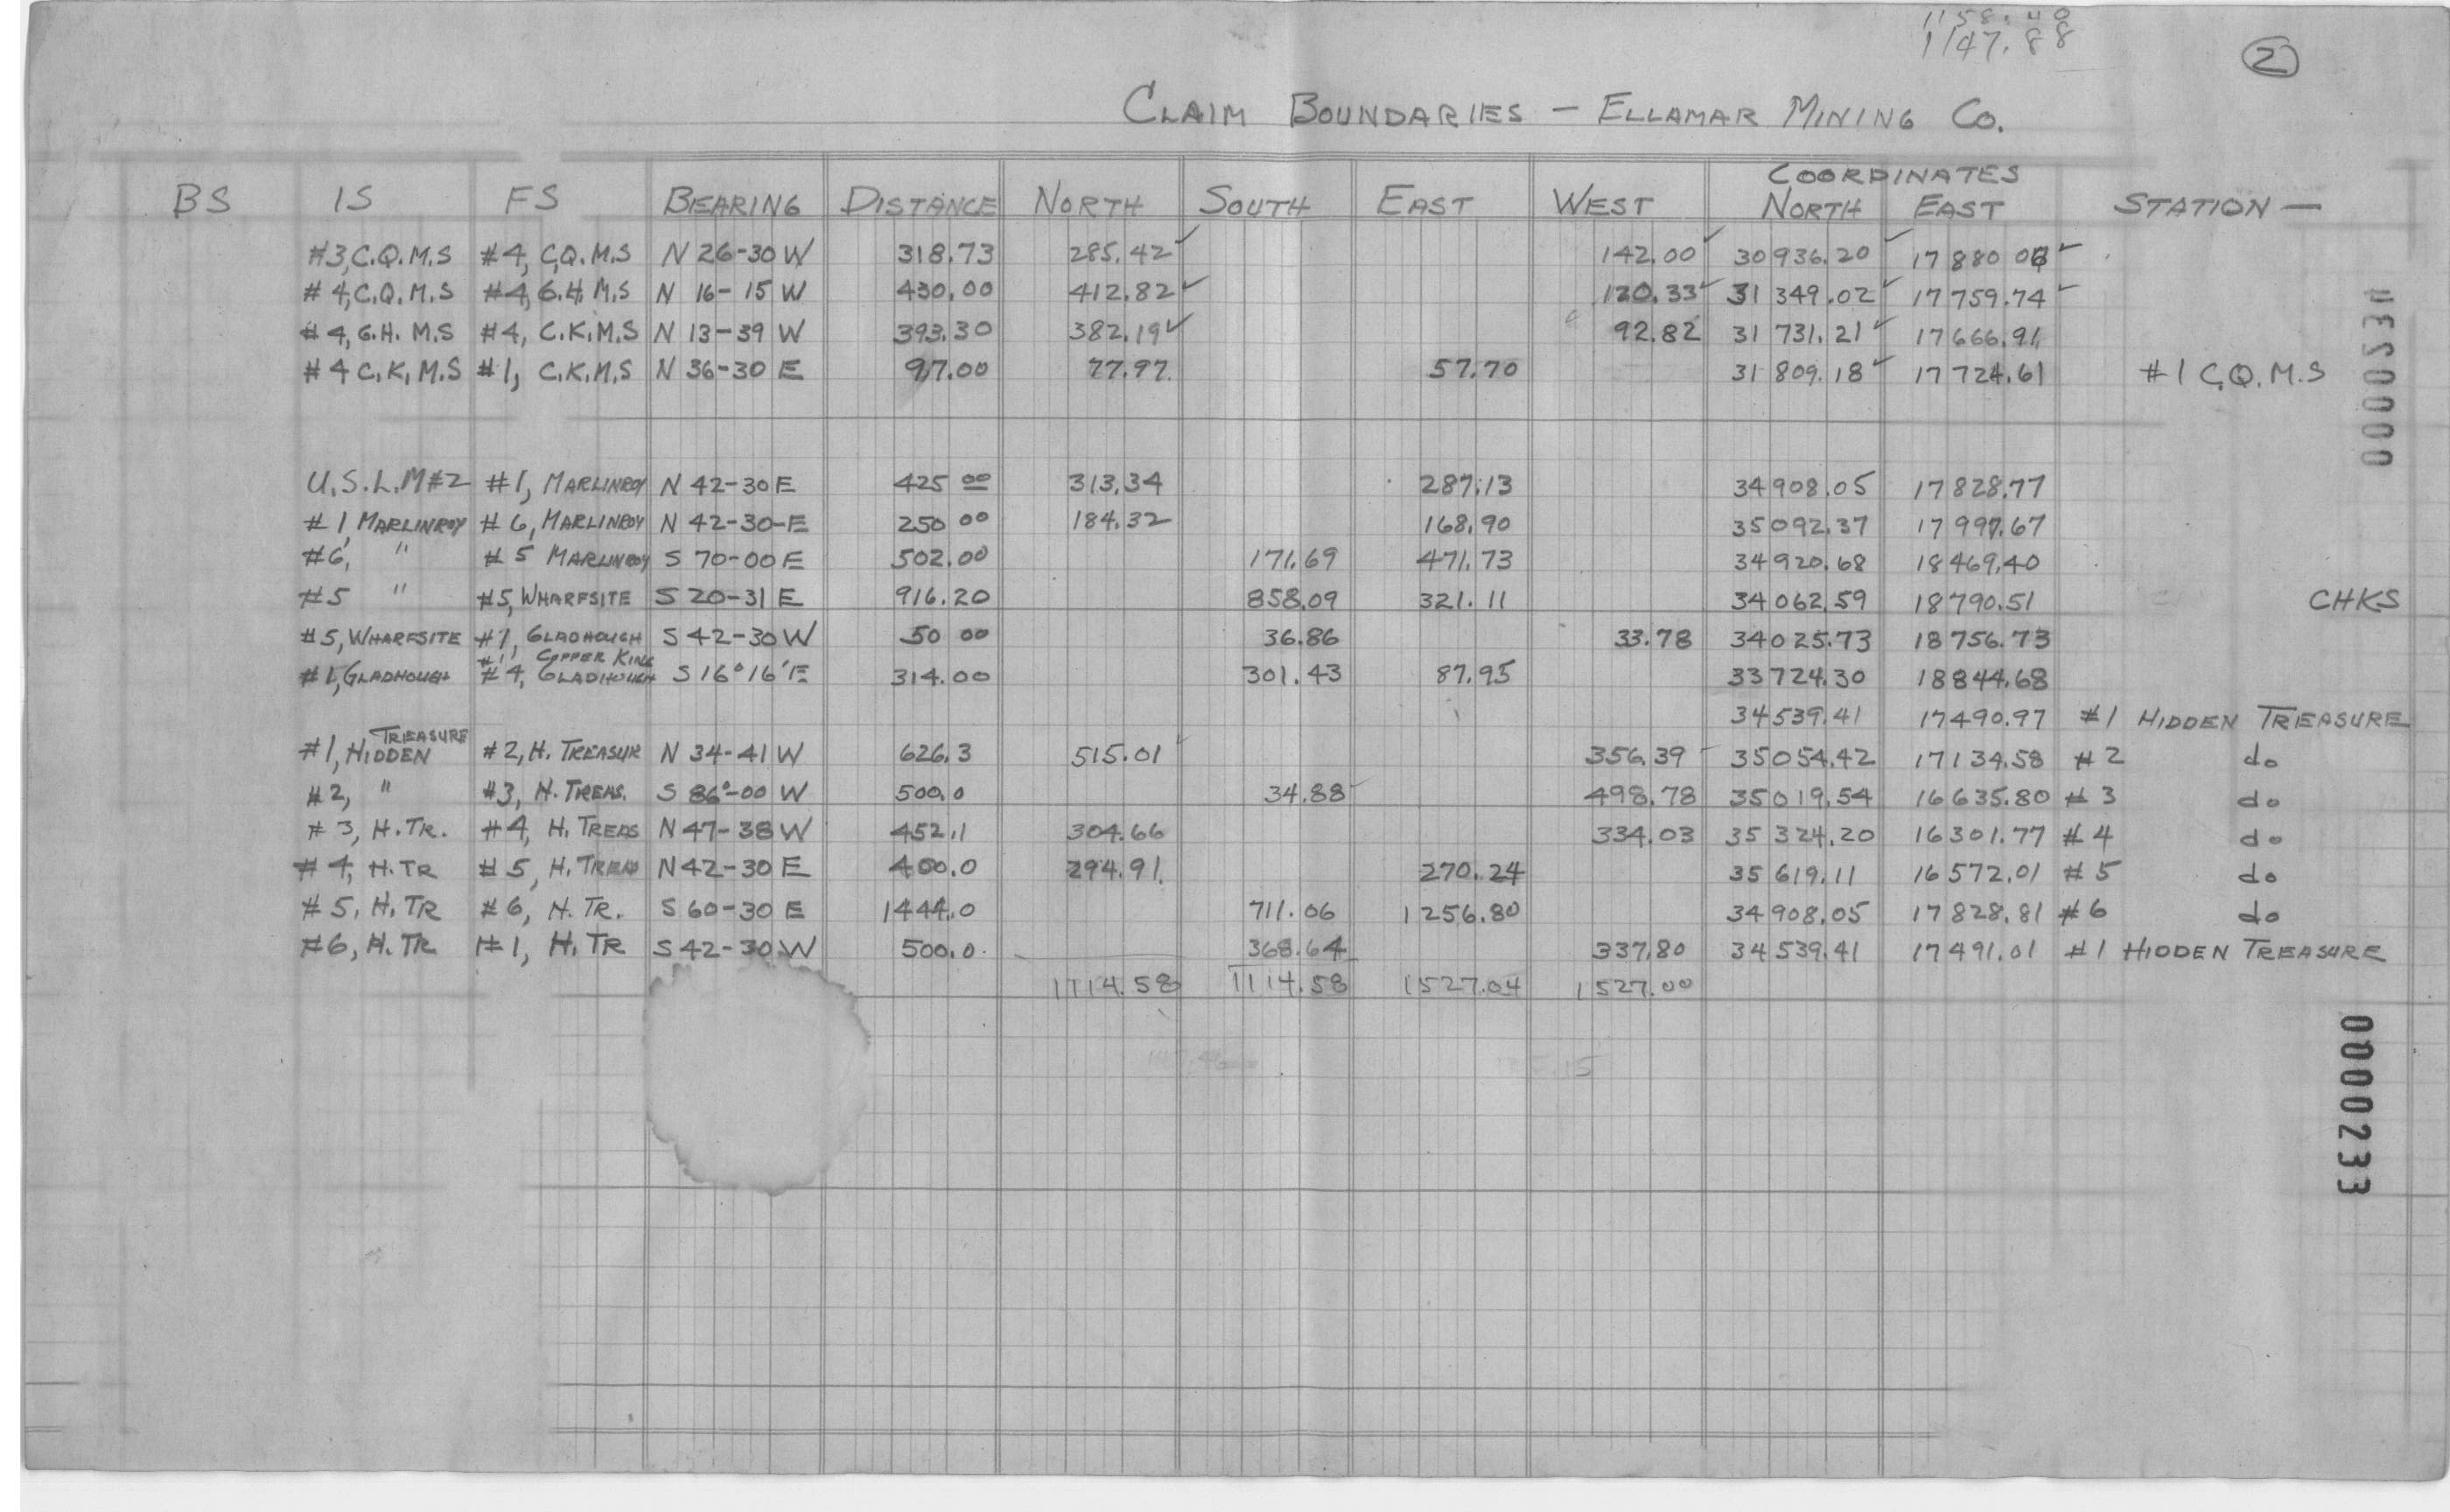 1158.40
1147.88
2
CLAIM BOUNDARIES — ELLAMAR MINING CO.
COORDINATES
BS IS FS BEARING DISTANCE NORTH SOUTH EAST WEST NORTH EAST STATION —
#3, C.Q.M.S #4, C.Q.M.S N 26-30 W 318.73 285.42 ✓ 142.00 ✓ 30 936.20 ✓ 17 880 ✓
#4, C.Q.M.S #4, G.H. M.S N 16-15 W 430.00 412.82 ✓ 120.33 ✓ 31 349.02 ✓ 17 759.74 ✓
#4, G.H. M.S #4, C.K.M.S N 13-39 W 393.30 382.19 ✓ 92.82 31 731.21 ✓ 17 666.91
#4 C.K.M.S #1, C.K.M.S N 36-30 E 97.00 77.97 57.70 31 809.18 ✓ 17 724.61 #1 C.Q.M.S
U.S.L.M #2 #1, MARLINROY N 42-30 E 425 00 313.34 287.13 34 908.05 17 828.77
#1, MARLINROY #6, MARLINROY N 42-30-E 250 00 184.32 168.90 35 092.37 17 997.67
#6, " #5 MARLINROY S 70-00 E 502.00 171.69 471.73 34 920.68 18 469.40
#5 " #5, WHARFSITE S 20-31 E 916.20 858.09 321.11 34 062.59 18 790.51 CHKS
#5, WHARFSITE #1, GLADHOUGH S 42-30 W 50 00 36.86 33.78 34 025.73 18 756.73
#1, COPPER KING
#1, GLADHOUGH #4, GLADHOUGH S 16°16'E 314.00 301.43 87.95 33 724.30 18 844.68
34 539.41 17 490.97 #1 HIDDEN TREASURE
TREASURE
#1, HIDDEN #2, H. TREASUR N 34-41 W 626.3 515.01 ✓ 356.39 35 054.42 17 134.58 #2 do
#2, " #3, H. TREAS. S 86°-00 W 500.0 34.88 498.78 35 019.54 16 635.80 #3 do
#3, H. TR. #4, H. TREAS N 47-38 W 452.1 304.66 334.03 35 324.20 16 301.77 #4 do
#4, H. TR #5, H. TREAS N 42-30 E 400.0 294.91 270.24 35 619.11 16 572.01 #5 do
#5, H. TR #6, H. TR. S 60-30 E 1444.0 711.06 1256.80 34 908.05 17 828.81 #6 do
#6, H. TR #1, H. TR S 42-30 W 500.0 368.64 337.80 34 539.41 17 491.01 #1 HIDDEN TREASURE
1114.58 1114.58 1527.04 1527.00
0000233